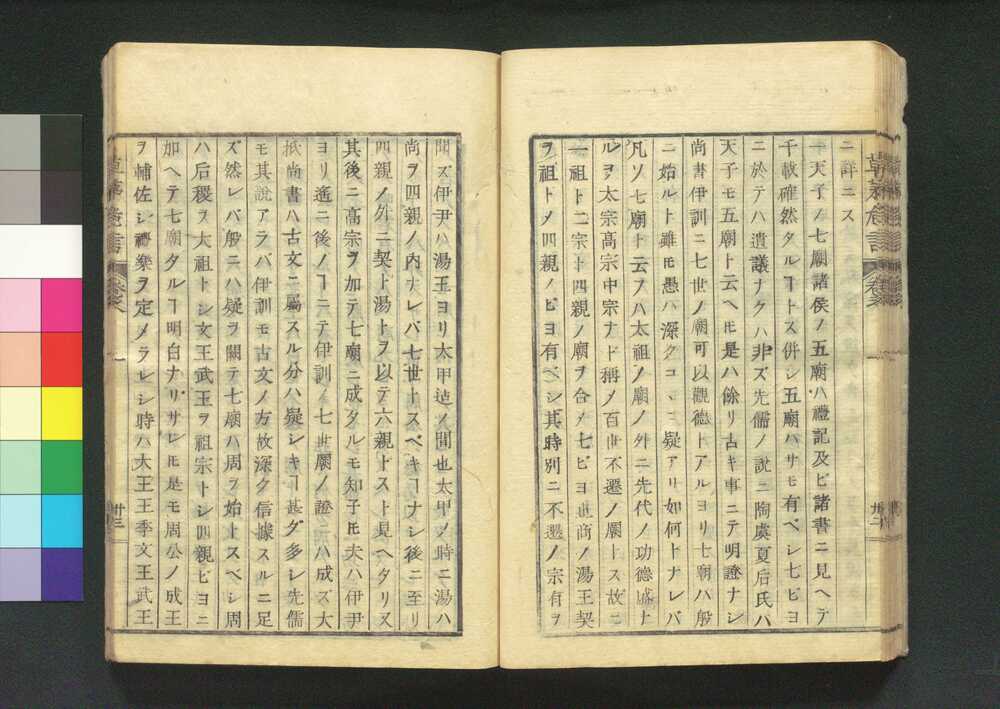 ニ詳ニス
一天子ノ七廟諸侯ノ五廟ハ禮記及ビ諸書ニ見ヘテ
千載確然タルヿトス併シ五廟ハサモ有ベシ七ビヨ
ニ於テハ遺議ナクハ非ズ先儒ノ説ニ陶虞夏后氏ハ
天子モ五廟ト云ヘ𪜈是ハ餘リ古キ事ニテ明證ナシ
尚書伊訓ニ七世ノ廟可以觀德トアルヨリ七廟ハ殷
ニ始ルト雖𪜈愚ハ深クコヽニ疑アリ如何トナレバ
凡ソ七廟ト云フハ太祖ノ廟ノ外ニ先代ノ功德盛ナ
ルヲ太宗高宗中宗ナド稱メ百世不遷ノ廟トス故ニ
一祖ト二宗ト四親ノ廟ヲ合メ七ビヨ世商ノ湯王契
ヲ祖トメ四親ノビヨ有ベシ其時別ニ不遷ノ宗有ヿ
聞ズ伊尹ハ湯王ヨリ太甲迠ノ間也太甲ノ時ニ湯ハ
尚ヲ四親ノ内ナレバ七世トスベキヿナシ後ニ至リ
四親ノ外ニ契ト湯トヲ以テ六親トスト見ヘタリ又
其後ニ高宗ヲ加テ七廟ニ成タルモ知子𪜈夫ハ伊尹
ヨリ遙ニ後ノヿニテ伊訓ノ七世廟ノ證ニハ成ズ大
抵尚書ハ古文ニ屬スル分ハ疑シキヿ甚ダ多シ先儒
モ其說アラバ伊訓モ古文ノ方故深ク信據スルニ足
ズ然レバ殷ニハ疑ヲ闕テ七廟ハ周ヲ始トスベシ周
ハ后稷ヲ大祖トシ文王武王ヲ祖宗トシ四親ビヨニ
加ヘテ七廟タルヿ明白ナリサレ𪜈是モ周公ノ成王
ヲ輔佐シ禮樂ヲ定メラレシ時ハ大王王季文王武王